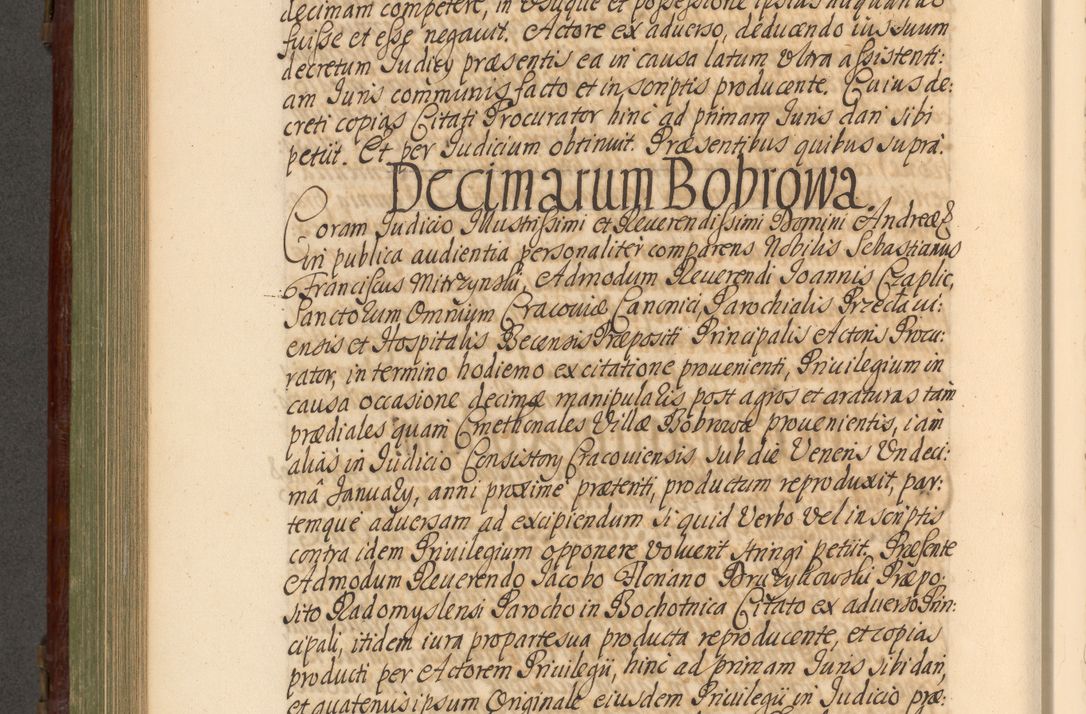 decimam competere, in usuque et possessione ipsius aliquando
fuisse et esse negavit. Actore ex adverso, deducendo ius suum
decretum Iudicÿ præsentis ea in causa latum Ultra assistenti:
am Iuris communis facto et in scriptis producente. Cuius de:
creti copias Citati Procurator hinc ad primam Iuris dari sibi
petiit. Et per Iudicium obtinuit. Præsentibus quibus supra.
Decimarum Bobrowa.
Coram Iudicio Illustrissimi et Reverendissimi Domini Andreæ &
in publica audientia personaliter comparens Nobilis Sebastianus
Franciscus Mitrzynski, Admodum Reverendi Ioannis Czaplic,
Sanctorum Omnium Cracoviæ Canonici, Parochialis Przeclavi:
ensis et Hospitalis Becensis Præpositi Principalis Actoris Procu:
rator, in termino hodierno ex citatione provenienti, Privilegium in
causa occasione decimæ manipularis post agros et araturas tam
prædiales quam Cmethonales Villæ Bobrowa provenientis, iam
alias in Iudicio Consistorÿ Cracoviensis sub die Veneris Undeci:
mâ Ianuarÿ, anni proxime præteriti, productum reproduxit, par:
temque adversam ad excipiendum si quid Verbo vel in scriptis
contra idem Privilegium opponere voluerit stringi petiit. Præsente
Admodum Reverendo Iacobo Floriano Druzykowski Præpo:
sito Radomyslensi Parocho in Bochotnica Citato ex adverso Prin:
cipali, itidem iura pro parte sua producta reproducente, et copias
producti per Actorem Privilegÿ, hinc ad primam Iuris sibi dari,
et quatenus ipsum Originale eiusdem Privilegÿ in Iudicio præ: